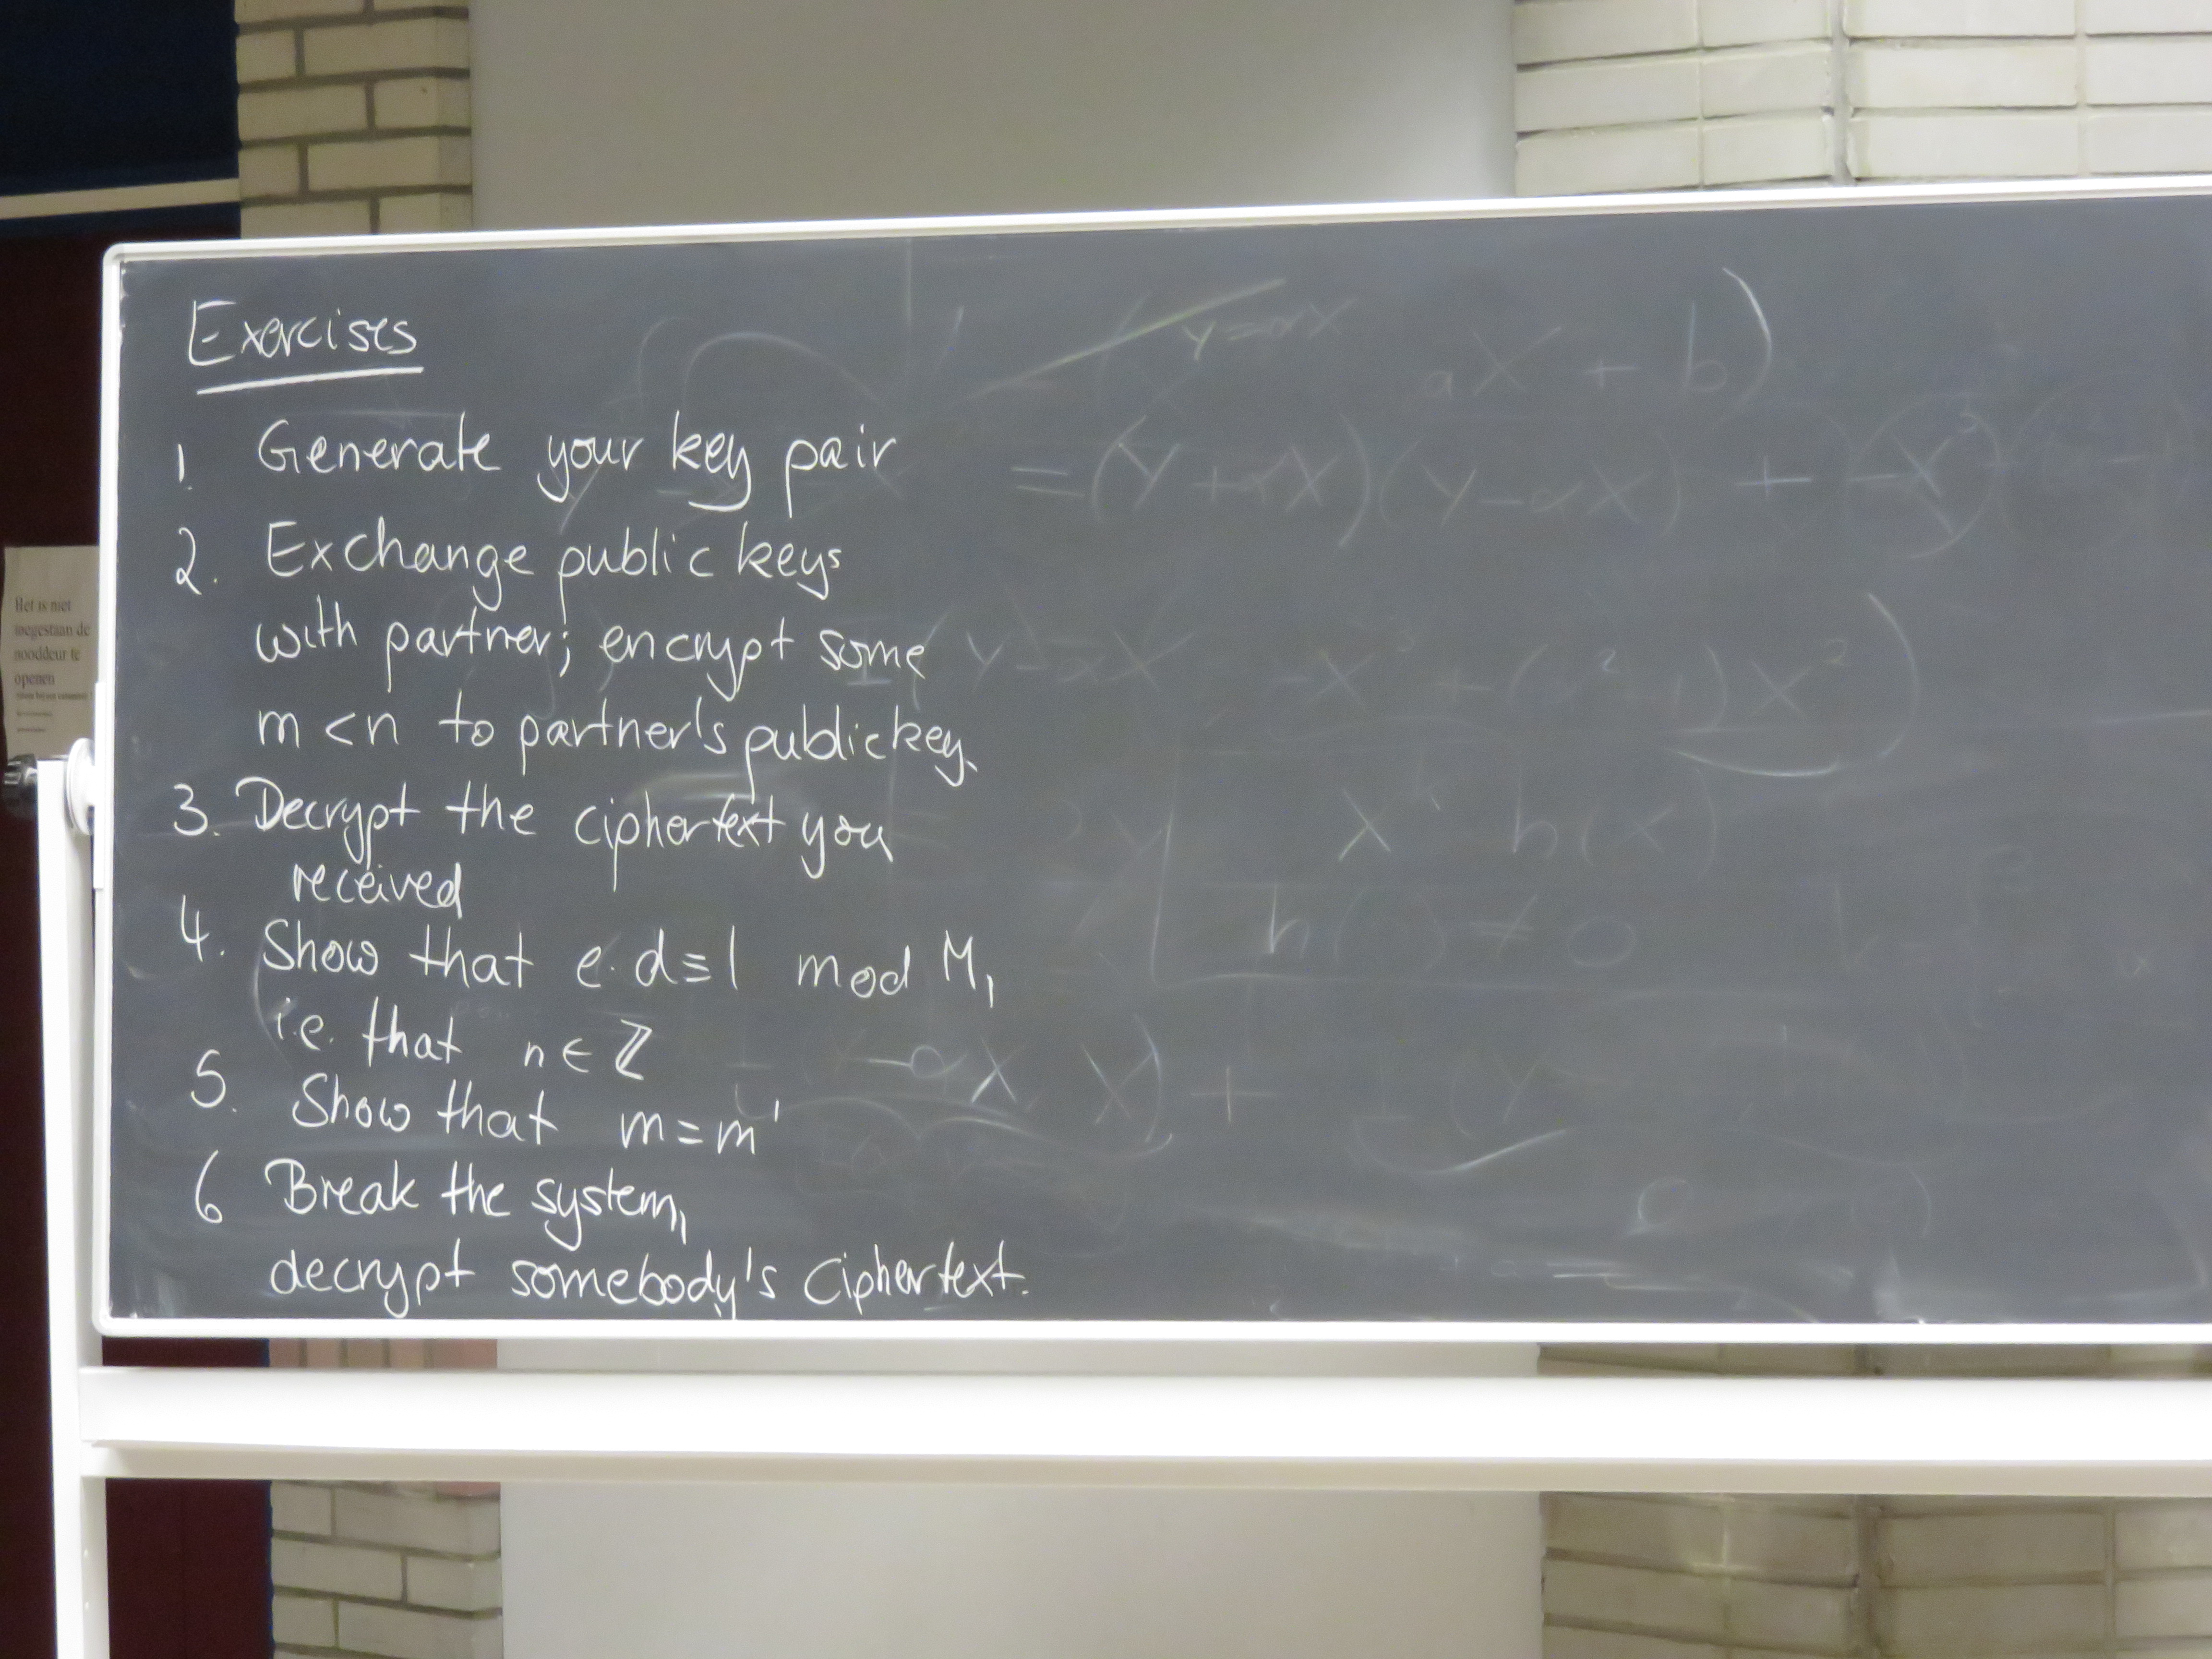 Exercises
1. Generate your key pair
2. Exchange public keys
with partner; encrypt some
m < n to partner's public key.
3. Decrypt the ciphertext you
received
4. Show that e·d≡1 mod M,
i.e. that n ∈ ℤ
5. Show that m = m'
6 Break the system,
decrypt somebody's ciphertext.
y=αx
aX + b)
=(Y+αX)(Y-αX) + (-X³)
h(x)
h( ) ≠ 0
Het is niet
toegestaan de
nooddeur te
openen